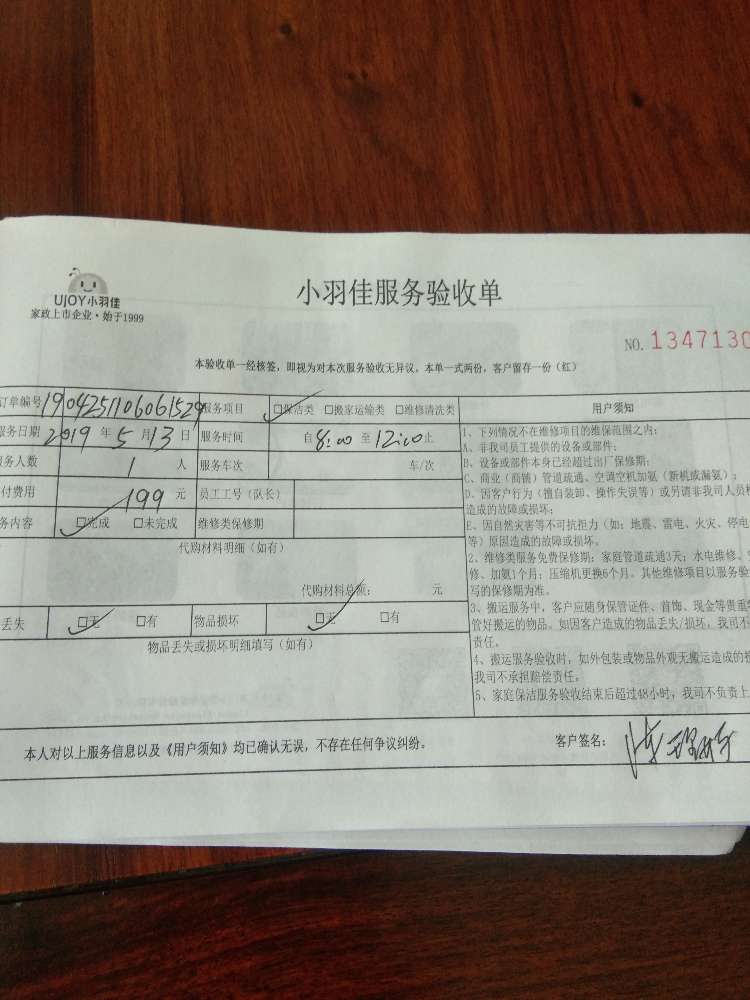 UJOY小羽佳
家政上市企业·始于1999
小羽佳服务验收单
NO. 1347130
本验收单一经核签，即视为对本次服务验收无异议。本单一式两份，客户留存一份（红）
订单编号 1904251106061529 服务项目 □保洁类 □搬家运输类 □维修清洗类
服务日期 2019 年 5 月 13 日 服务时间 自 8:00 至 12:00 止
服务人数 1 人 服务车次 车/次
付费用 199 元 员工工号（队长）
务内容 □完成 □未完成 维修类保修期
代购材料明细（如有）
代购材料总额： 元
丢失 □无 □有 物品损坏 □无 □有
物品丢失或损坏明细填写（如有）
用户须知
1、下列情况不在维修项目的维保范围之内：
A、非我司员工提供的设备或部件；
B、设备或部件本身已经超过出厂保修期；
C、商业（商铺）管道疏通、空调空机加氨（新机或漏氨）；
D、因客户行为（擅自装卸、操作失误等）或另请非我司人员
造成的故障或损坏；
E、因自然灾害等不可抗拒力（如：地震、雷电、火灾、停电
等）原因造成的故障或损坏。
2、维修类服务免费保修期：家庭管道疏通3天；水电维修、
修、加氨1个月；压缩机更换6个月。其他维修项目以服务验
写的保修期为准。
3、搬运服务中，客户应随身保管证件、首饰、现金等贵重
管好搬运的物品。如因客户造成的物品丢失/损坏，我司不
责任。
4、搬运服务验收时，如外包装或物品外观无搬运造成的
我司不承担赔偿责任。
5、家庭保洁服务验收结束后超过48小时，我司不负责上
本人对以上服务信息以及《用户须知》均已确认无误，不存在任何争议纠纷。 客户签名：